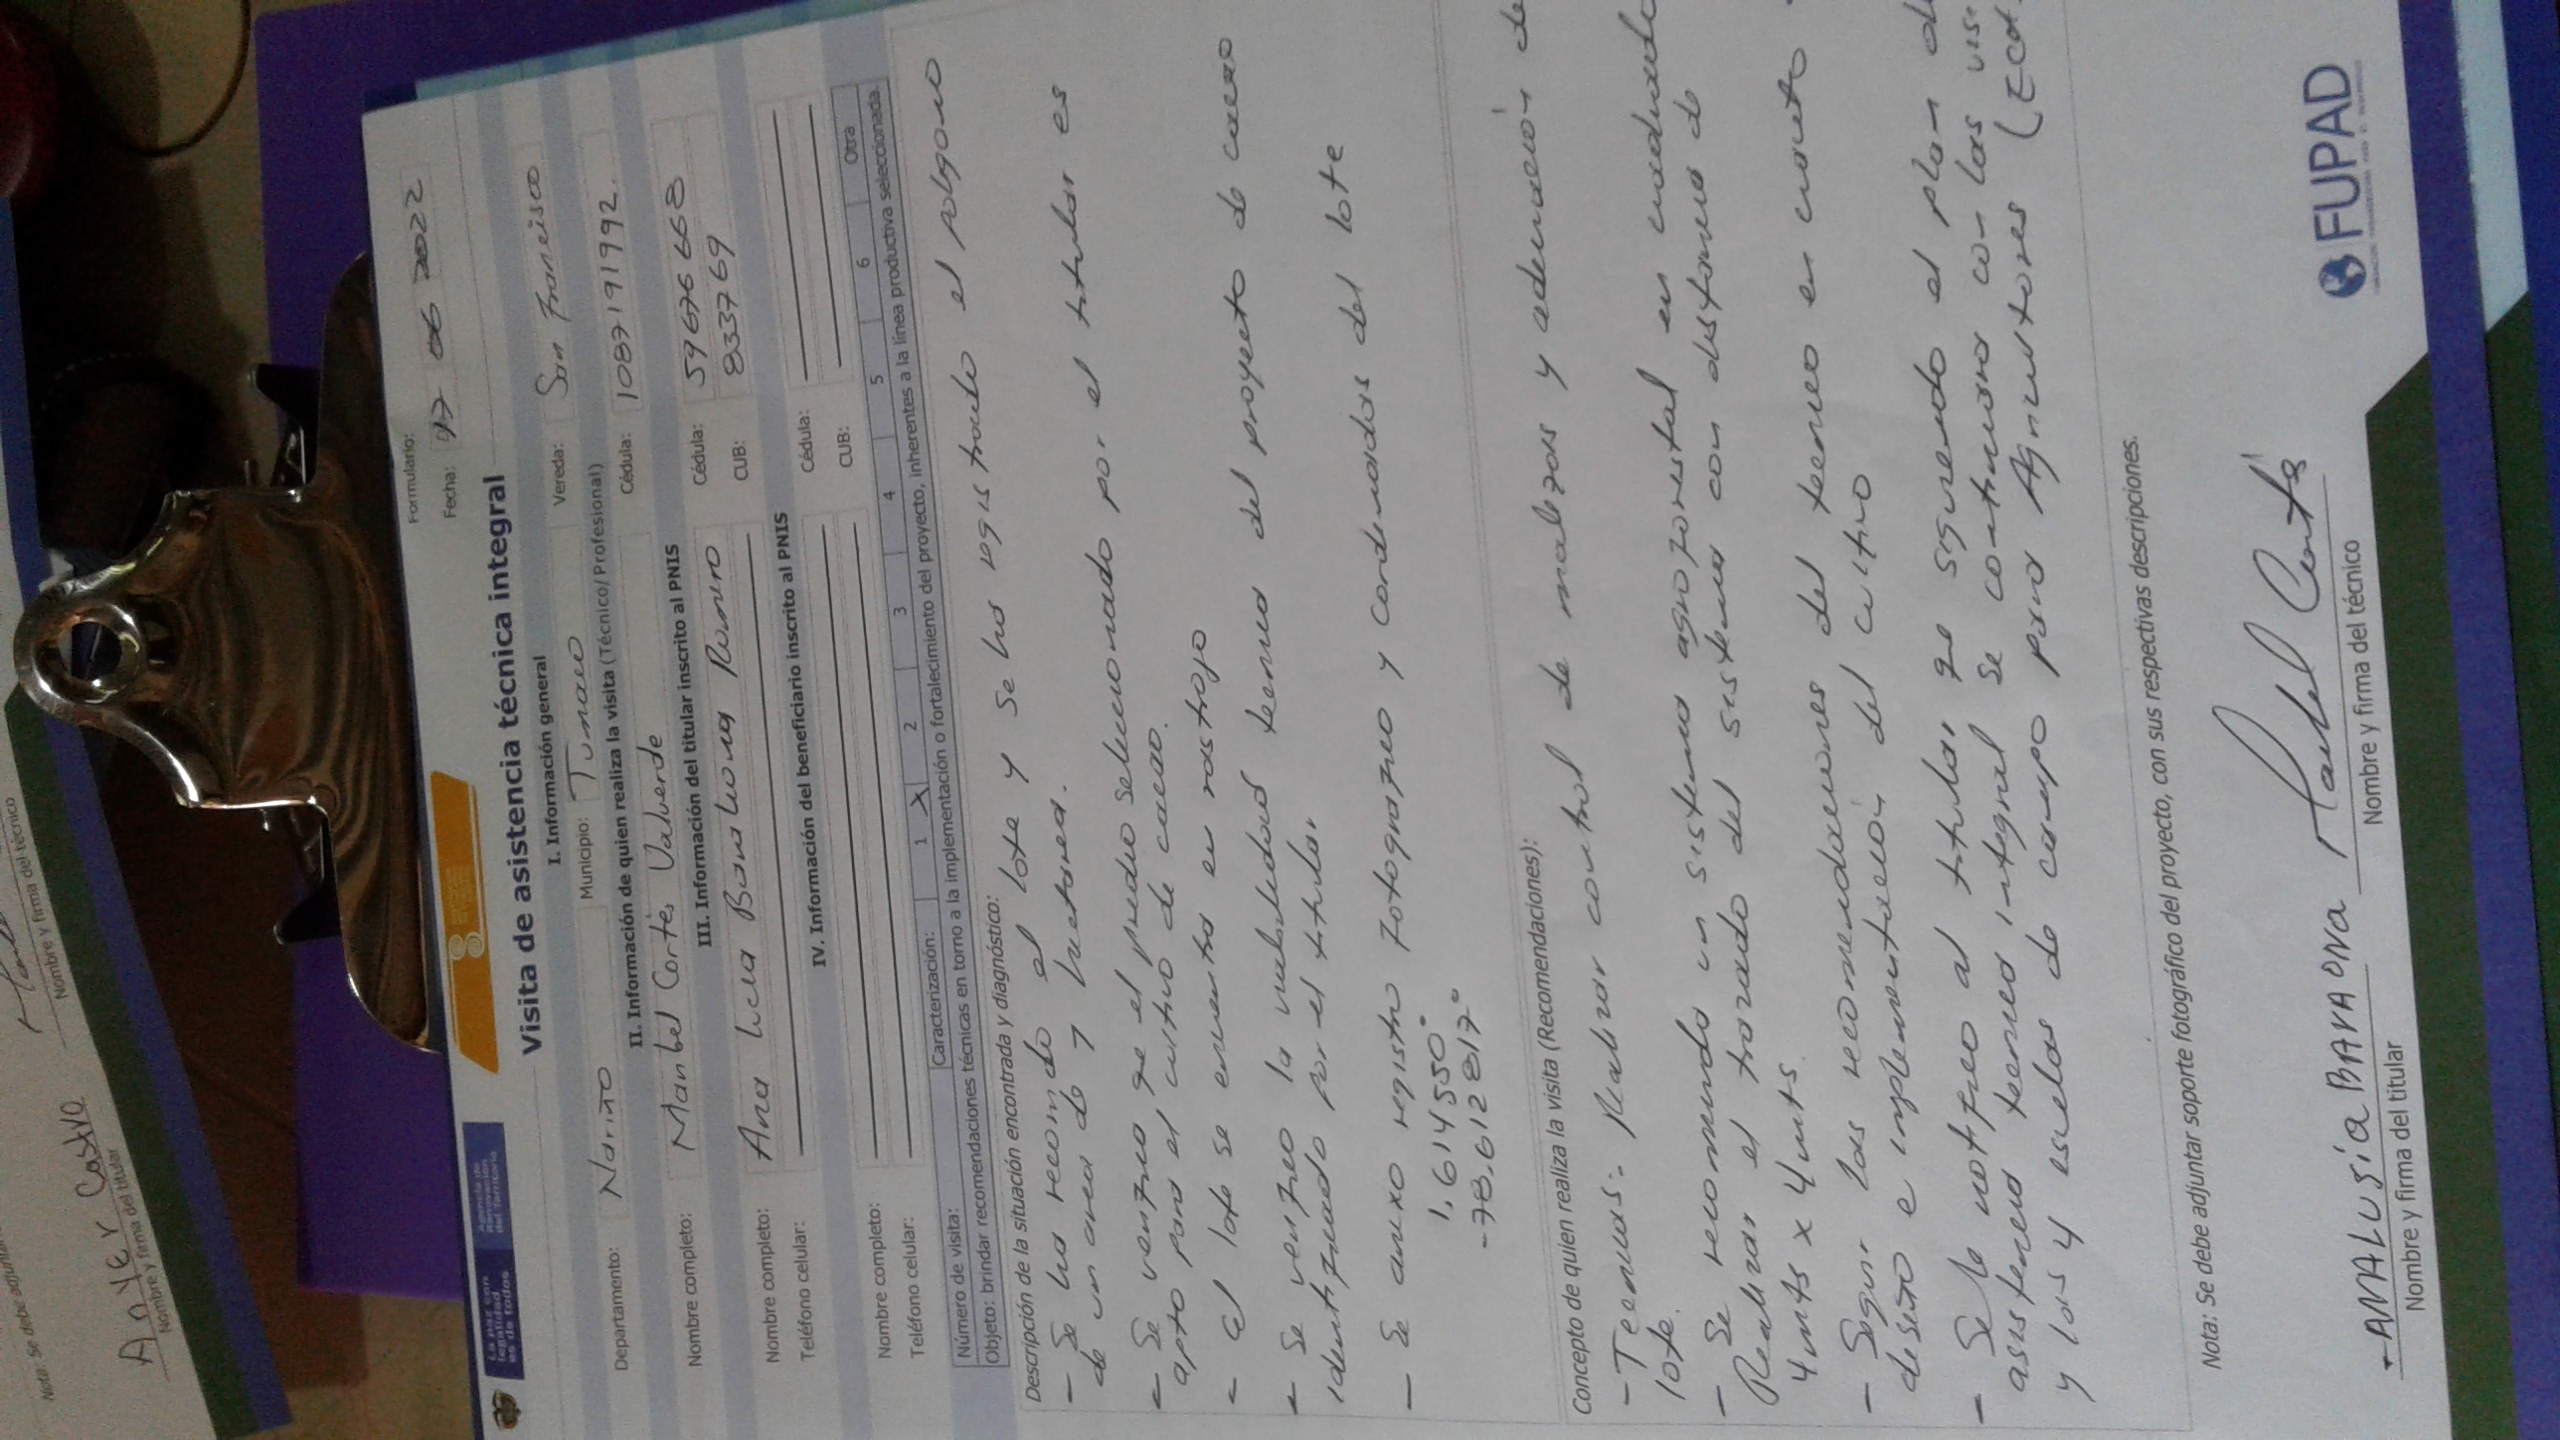 Nota: Se debe adjuntar
Anyer Castro
Nombre y firma del titular
Nombre y firma del técnico
La paz con legalidad es de todos
Agencia de Renovación del Territorio
Formulario:
Fecha: 17 06 2022
Visita de asistencia técnica integral
I. Información general
Departamento: Nariño Municipio: Tumaco Vereda: San Francisco
II. Información de quien realiza la visita (Técnico/Profesional)
Nombre completo: Maribel Cortés Valverde Cédula: 1087191992
III. Información del titular inscrito al PNIS
Nombre completo: Ana lucia Barahona Romero Cédula: 59676668
Teléfono celular: CUB: 833769
IV. Información del beneficiario inscrito al PNIS
Nombre completo: Cédula:
Teléfono celular: CUB:
Número de visita: Caracterización: 1 X 2 3 4 5 6 Otra
Objeto: brindar recomendaciones técnicas en torno a la implementación o fortalecimiento del proyecto, inherentes a la línea productiva seleccionada.
Descripción de la situación encontrada y diagnóstico:
- Se ha recorrido el lote y se ha registrado el poligono
de un area de 1 hectarea.
- Se verifico que el predio seleccionado por el titular es
apto para el cultivo de cacao.
- El lote se encuentra en rastrojo
- Se verifico la viabilidad tecnica del proyecto de cacao
identificado por el titular
- Se anexo registro fotografico y cordenadas del lote
1.614550°
-78.612817°
Concepto de quien realiza la visita (Recomendaciones):
- Tecnicas:- Realizar control de malezas y adecuación de
lote.
- Se recomienda un sistema agroforestal en cuadrado
Realizar el trazado del sistema con distancia de
4 mts x 4 mts.
- Seguir las recomendaciones del tecnico en cuanto a
diseño e implementación del cultivo
- Se le notifico al titular que siguiendo el plan de
asistencia tecnica integral se continuara con las
y las 4 escuelas de campo para Agricultores (ECA
Nota: Se debe adjuntar soporte fotográfico del proyecto, con sus respectivas descripciones.
ANALUSÍA BARAONA
Nombre y firma del titular
Maribel Cortés
Nombre y firma del técnico
FUPAD